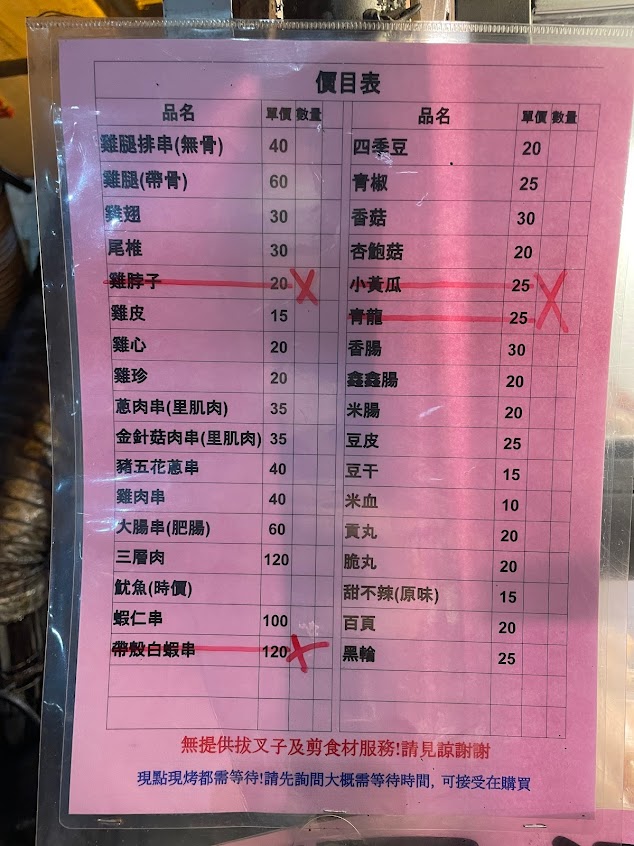 價目表
品名 單價 數量
雞腿排串(無骨) 40
雞腿(帶骨) 60
雞翅 30
尾椎 30
雞脖子 20
雞皮 15
雞心 20
雞珍 20
蔥肉串(里肌肉) 35
金針菇肉串(里肌肉) 35
豬五花蔥串 40
雞肉串 40
大腸串(肥腸) 60
三層肉 120
魷魚(時價)
蝦仁串 100
帶殼白蝦串 120
品名 單價 數量
四季豆 20
青椒 25
香菇 30
杏鮑菇 20
小黃瓜 25
青龍 25
香腸 30
鑫鑫腸 20
米腸 20
豆皮 25
豆干 15
米血 10
貢丸 20
脆丸 20
甜不辣(原味) 15
百頁 20
黑輪 25
無提供拔叉子及剪食材服務!請見諒謝謝
現點現烤都需等待!請先詢問大概需等待時間, 可接受在購買